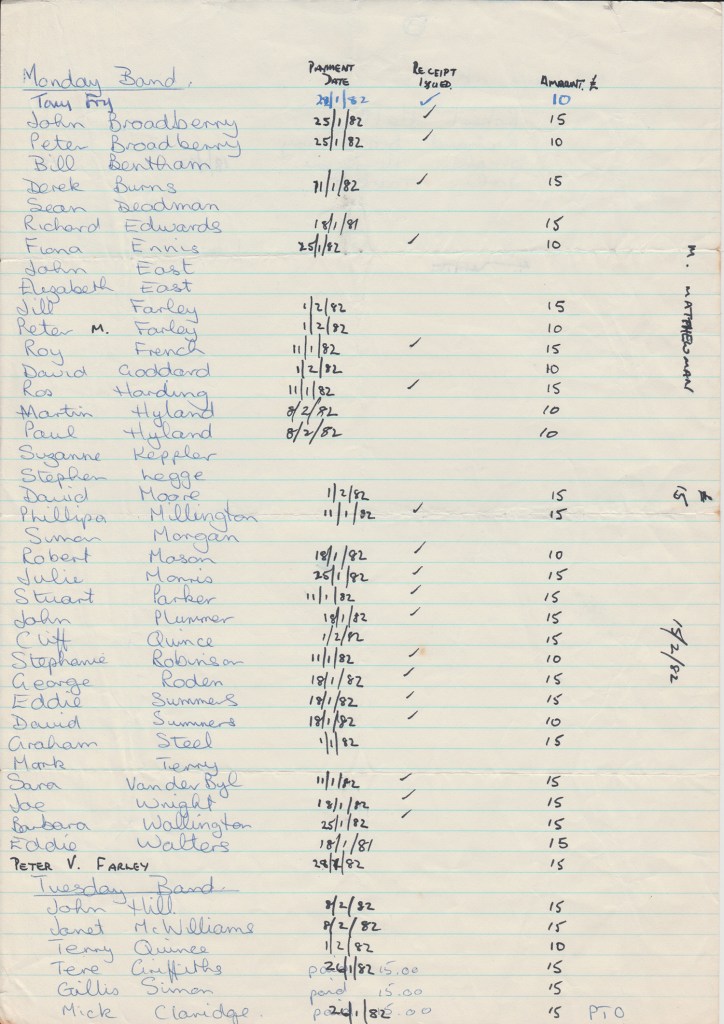 Monday Band. PAYMENT DATE RECEIPT ISSUED. AMOUNT £
Tony Fry 28/1/82 ✓ 10
John Broadberry 25/1/82 ✓ 15
Peter Broadberry 25/1/82 ✓ 10
Bill Bentham
Derek Burns 11/1/82 ✓ 15
Sean Deadman
Richard Edwards 18/1/81 15
Fiona Ennis 25/1/82 ✓ 10
John East
Elizabeth East
Jill Farley 1/2/82 15
Peter M. Farley 1/2/82 10
Roy French 11/1/82 ✓ 15
David Goddard 1/2/82 10
Ros Harding 11/1/82 ✓ 15
Martin Hyland 8/2/82 10
Paul Hyland 8/2/82 10
Suzanne Keppler
Stephen Legge
David Moore 1/2/82 15
Phillipa Millington 11/1/82 ✓ 15
Simon Morgan
Robert Mason 18/1/82 ✓ 10
Julie Morris 25/1/82 ✓ 15
Stuart Parker 11/1/82 ✓ 15
John Plummer 18/1/82 ✓ 15
Cliff Quince 1/2/82 15
Stephanie Robinson 11/1/82 ✓ 10
George Roden 18/1/82 ✓ 15
Eddie Summers 18/1/82 ✓ 15
David Summers 18/1/82 ✓ 10
Graham Steel 1/1/82 15
Mark Terry
Sara Van der Byl 11/1/82 ✓ 15
Joe Wright 18/1/82 ✓ 15
Barbara Wallington 25/1/82 ✓ 15
Eddie Walters 18/1/81 15
PETER V. FARLEY /82 15
Tuesday Band
John Hill 8/2/82 15
Janet McWilliams 8/2/82 15
Terry Quince 1/2/82 10
Tere Griffiths paid 26/1/82 15.00 15
Gillis Simon paid 15.00 15
Mick Claridge. paid 26/1/82 15.00 15 PTO
M. MATTHEWMAN £15 15/2/82